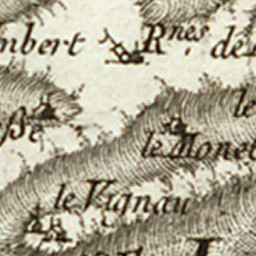 mbert Rnes de
ße
le
le Monet
le Vignau